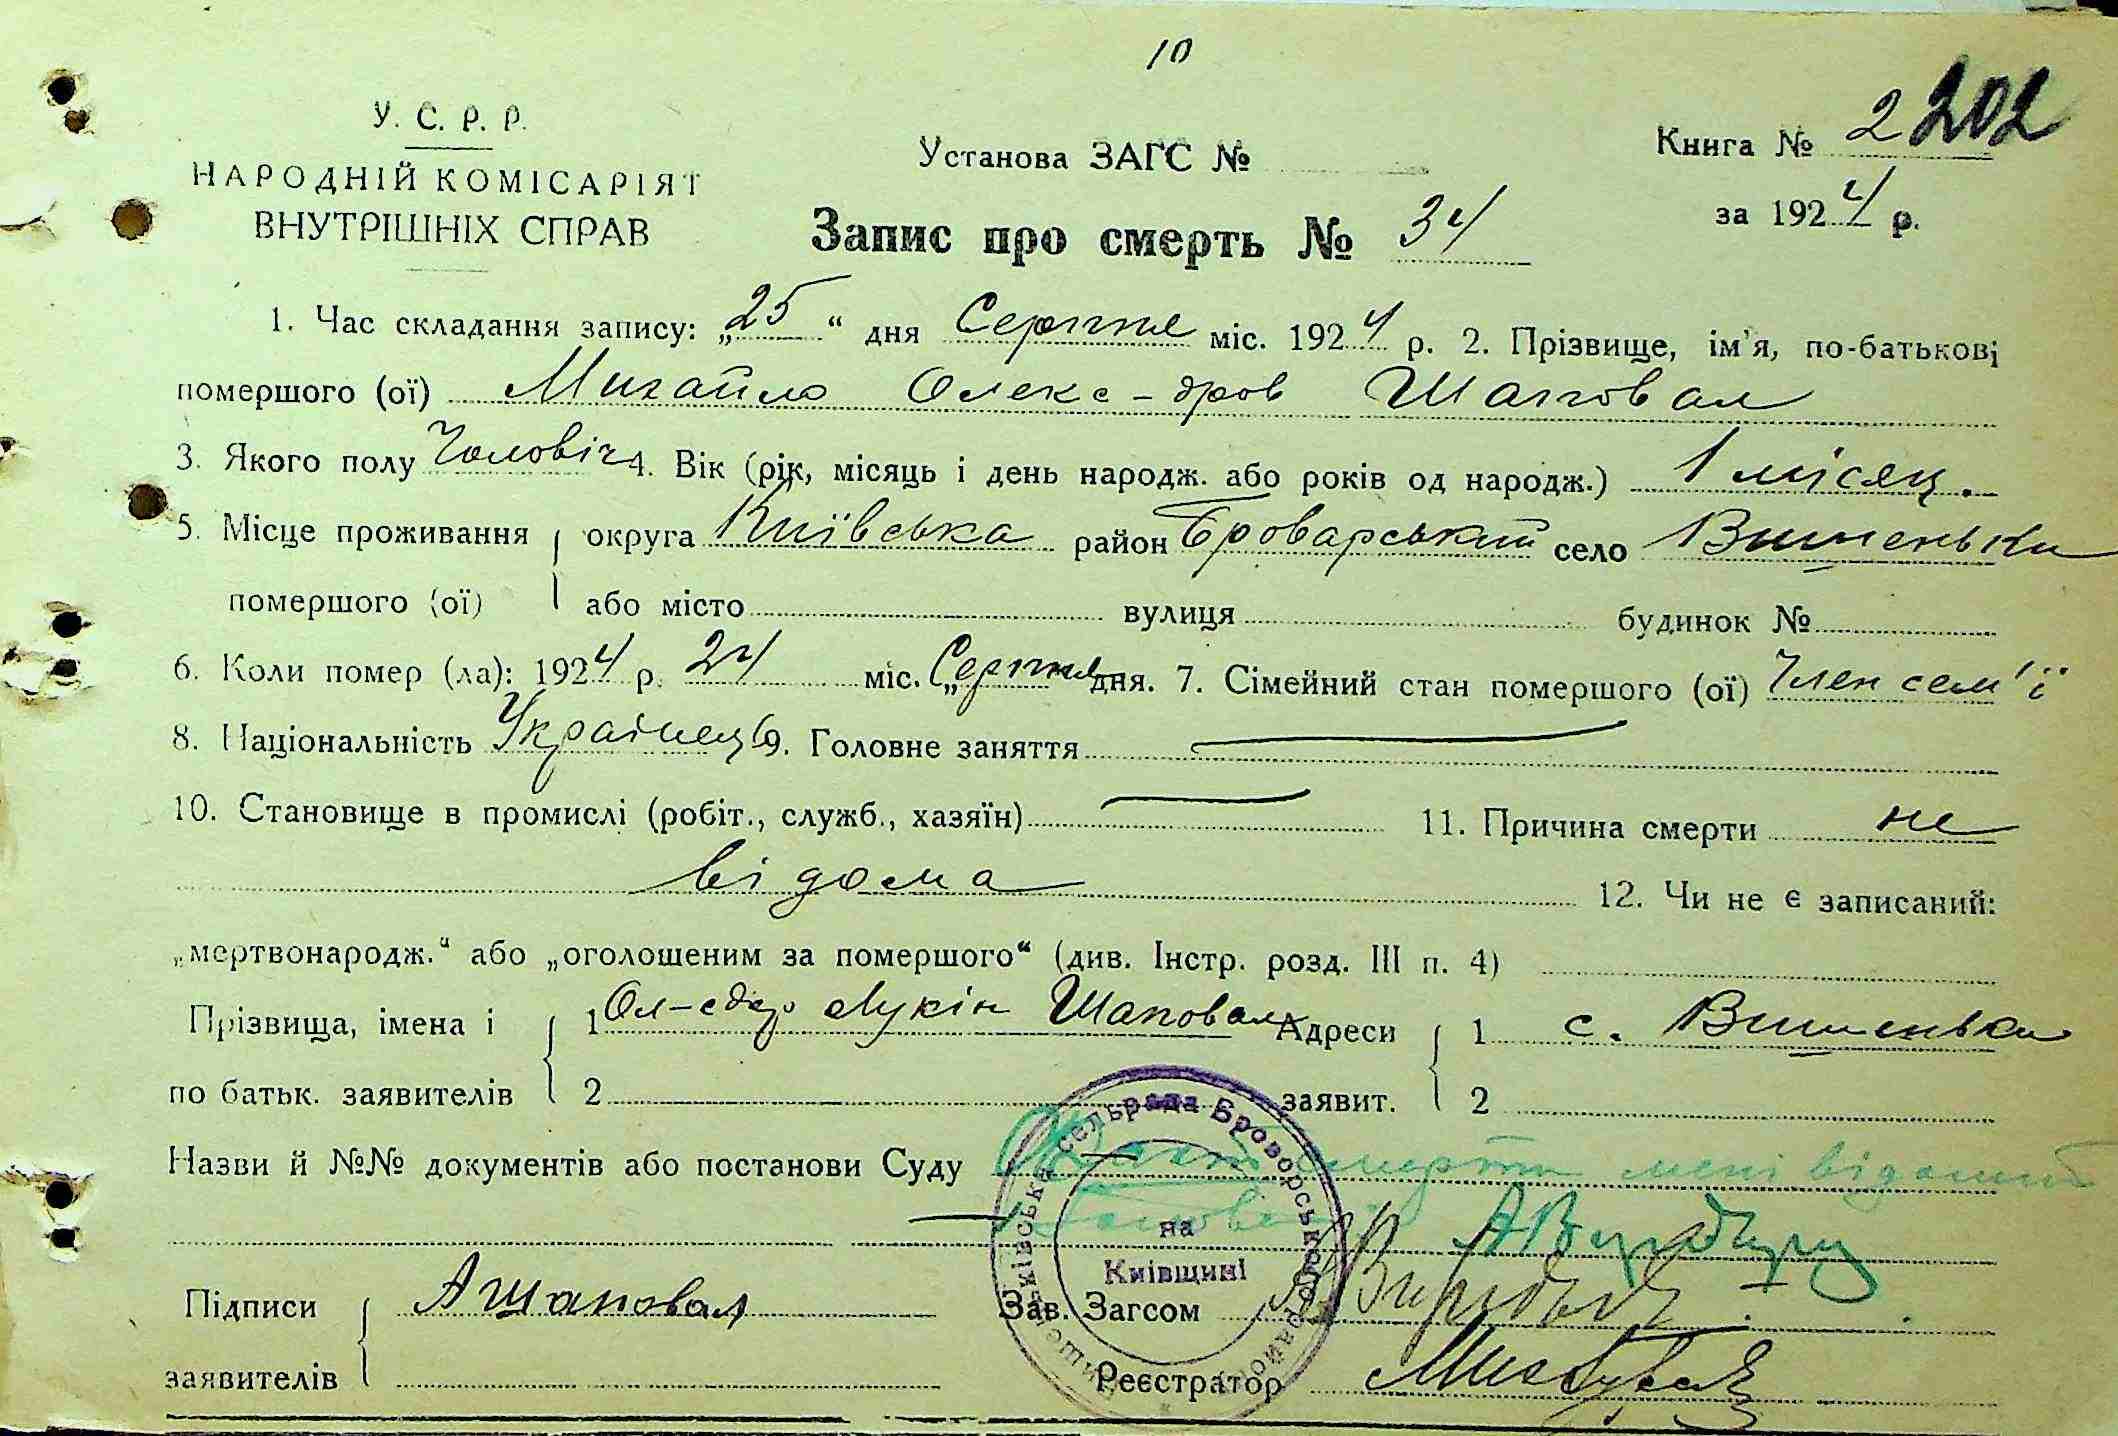 10
У. С. Р. Р.
НАРОДНІЙ КОМІСАРІЯТ
ВНУТРІШНІХ СПРАВ
Установа ЗАГС №
Книга № 2 202
за 1924 р.
Запис про смерть № 34
1. Час складання запису: „25“ дня Серпня міс. 1924 р. 2. Прізвище, ім'я, по-батькові
помершого (ої) Михайло Олекс-дров Шаповал
3. Якого полу Чоловіч 4. Вік (рік, місяць і день народж. або років од народж.) 1 місяц.
5. Місце проживання округа Київська район Броварський село Вишеньки
помершого (ої) або місто вулиця будинок №
6. Коли помер (ла): 1924 р. 24 міс. „Серпня дня. 7. Сімейний стан помершого (ої) Член сем'ї
8. Національність Українець 9. Головне заняття
10. Становище в промислі (робіт., служб., хазяїн) 11. Причина смерти не
відома 12. Чи не є записаний:
„мертвонародж.“ або „оголошеним за помершого“ (див. Інстр. розд. III п. 4)
Прізвища, імена і 1 Ол-сдр Лукін Шаповал Адреси 1 с. Вишеньки
по батьк. заявителів 2 заявит. 2
Назви й №№ документів або постанови Суду смерти мені відомий
сельрада Броворського району
на
Київщині
Підписи А Шаповал Зав. Загсом
заявителів Реєстратор